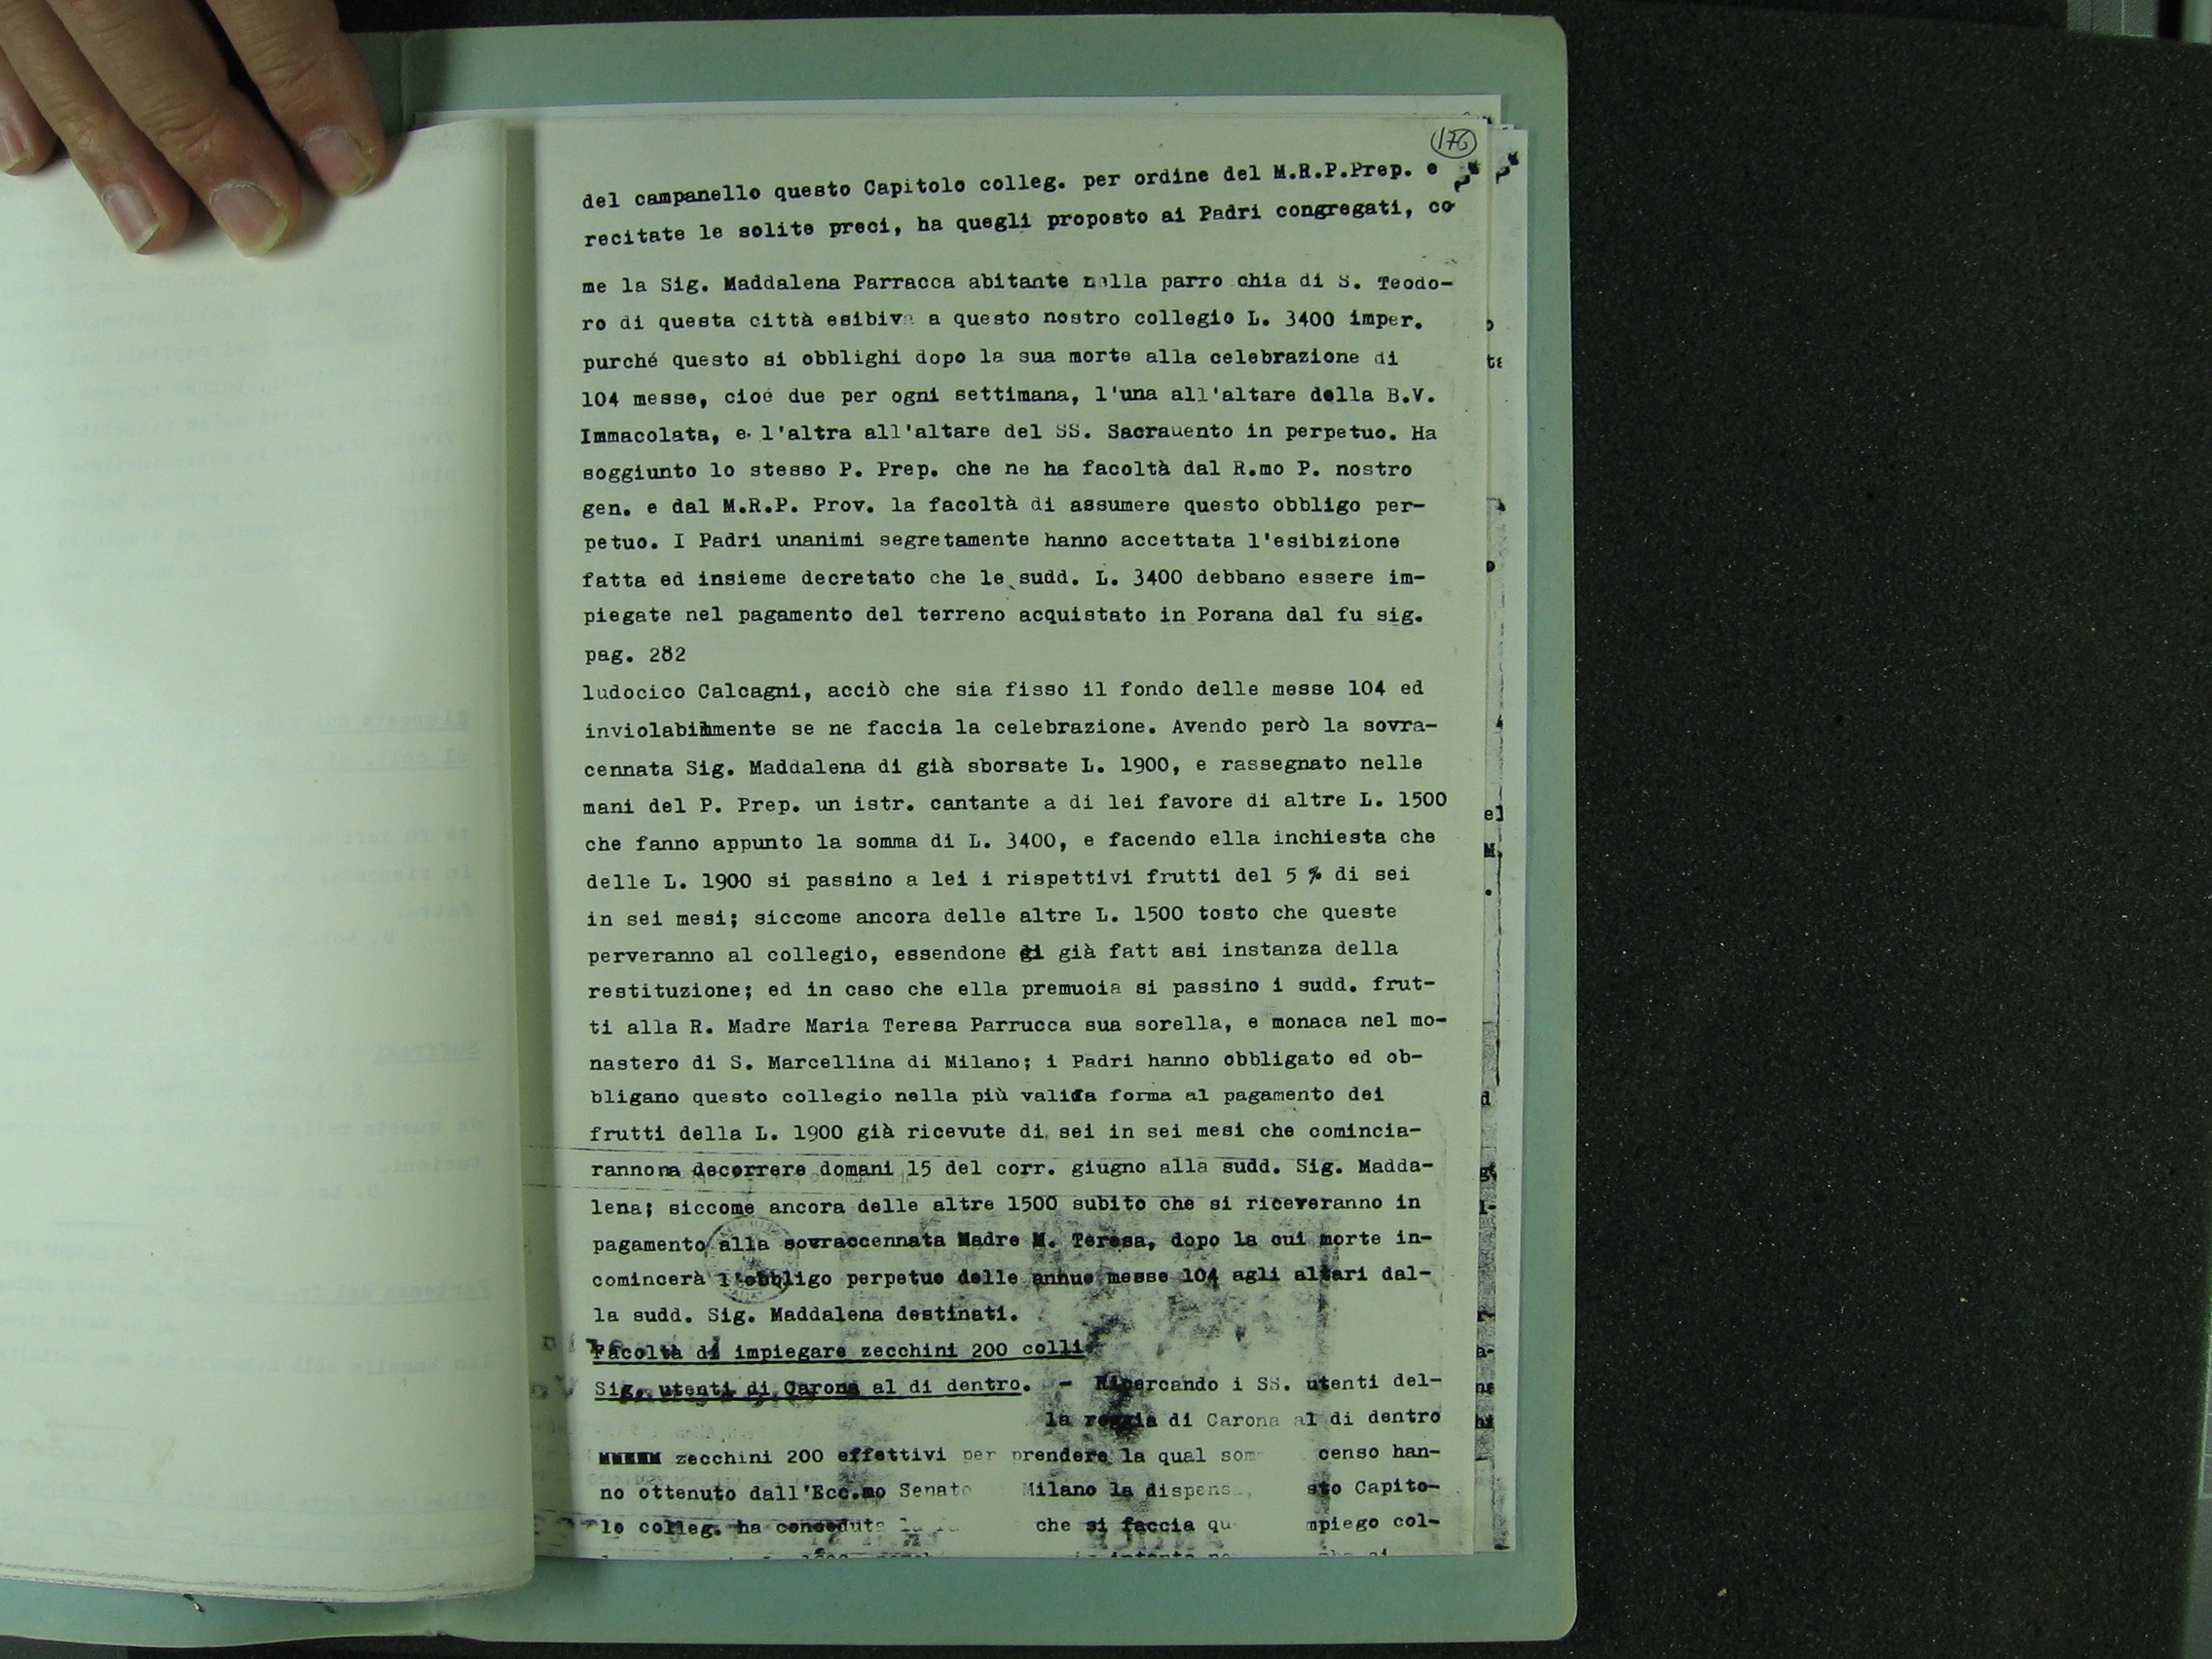 176
del campanello questo Capitolo colleg. per ordine del M.R.P.Prep. e
recitate le solite preci, ha quegli proposto ai Padri congregati, co
me la Sig. Maddalena Parracca abitante nella parro chia di S. Teodo-
ro di questa città esibiva a questo nostro collegio L. 3400 imper.
purché questo si obblighi dopo la sua morte alla celebrazione di
104 messe, cioé due per ogni settimana, l'una all'altare della B.V.
Immacolata, e l'altra all'altare del SS. Sacrauento in perpetuo. Ha
soggiunto lo stesso P. Prep. che ne ha facoltà dal R.mo P. nostro
gen. e dal M.R.P. Prov. la facoltà di assumere questo obbligo per-
petuo. I Padri unanimi segretamente hanno accettata l'esibizione
fatta ed insieme decretato che le sudd. L. 3400 debbano essere im-
piegate nel pagamento del terreno acquistato in Porana dal fu sig.
pag. 282
ludocico Calcagni, acciò che sia fisso il fondo delle messe 104 ed
inviolabilmente se ne faccia la celebrazione. Avendo però la sovra-
cennata Sig. Maddalena di già sborsate L. 1900, e rassegnato nelle
mani del P. Prep. un istr. cantante a di lei favore di altre L. 1500
che fanno appunto la somma di L. 3400, e facendo ella inchiesta che
delle L. 1900 si passino a lei i rispettivi frutti del 5 % di sei
in sei mesi; siccome ancora delle altre L. 1500 tosto che queste
perveranno al collegio, essendone di già fatt asi instanza della
restituzione; ed in caso che ella premuoia si passino i sudd. frut-
ti alla R. Madre Maria Teresa Parrucca sua sorella, e monaca nel mo-
nastero di S. Marcellina di Milano; i Padri hanno obbligato ed ob-
bligano questo collegio nella più valida forma al pagamento dei
frutti della L. 1900 già ricevute di sei in sei mesi che comincia-
rannoma decorrere domani 15 del corr. giugno alla sudd. Sig. Madda-
lena; siccome ancora delle altre 1500 subito che si riceveranno in
pagamento alla sovraccennata Madre M. Teresa, dopo la cui morte in-
comincerà l'obbligo perpetuo delle annue messe 104 agli altari dal-
la sudd. Sig. Maddalena destinati.
Facoltà di impiegare zecchini 200 colli
Sig. utenti di Carona al di dentro. - Ricercando i SS. utenti del-
la roggia di Carona al di dentro
zecchini 200 effettivi per prendere la qual censo han-
no ottenuto dall'Ecc.mo Senato Milano la Capito-
lo colleg. ha che si faccia col-